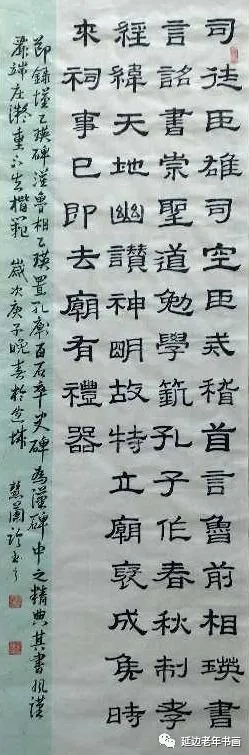 司徒臣雄司空臣戒稽首言魯前相瑛書
言詔書崇聖道勉學藝孔子作春秋制孝
經緯天地幽讚神明故特立廟褒成侯時
來祠事已即去廟有禮器
節錄漢乙瑛碑漢魯相乙瑛置孔廟百石卒史碑為漢碑中之精典其書風
肅端庄凝重楷範 歲次庚子晚春於延城 慧蘭
延边老年书画